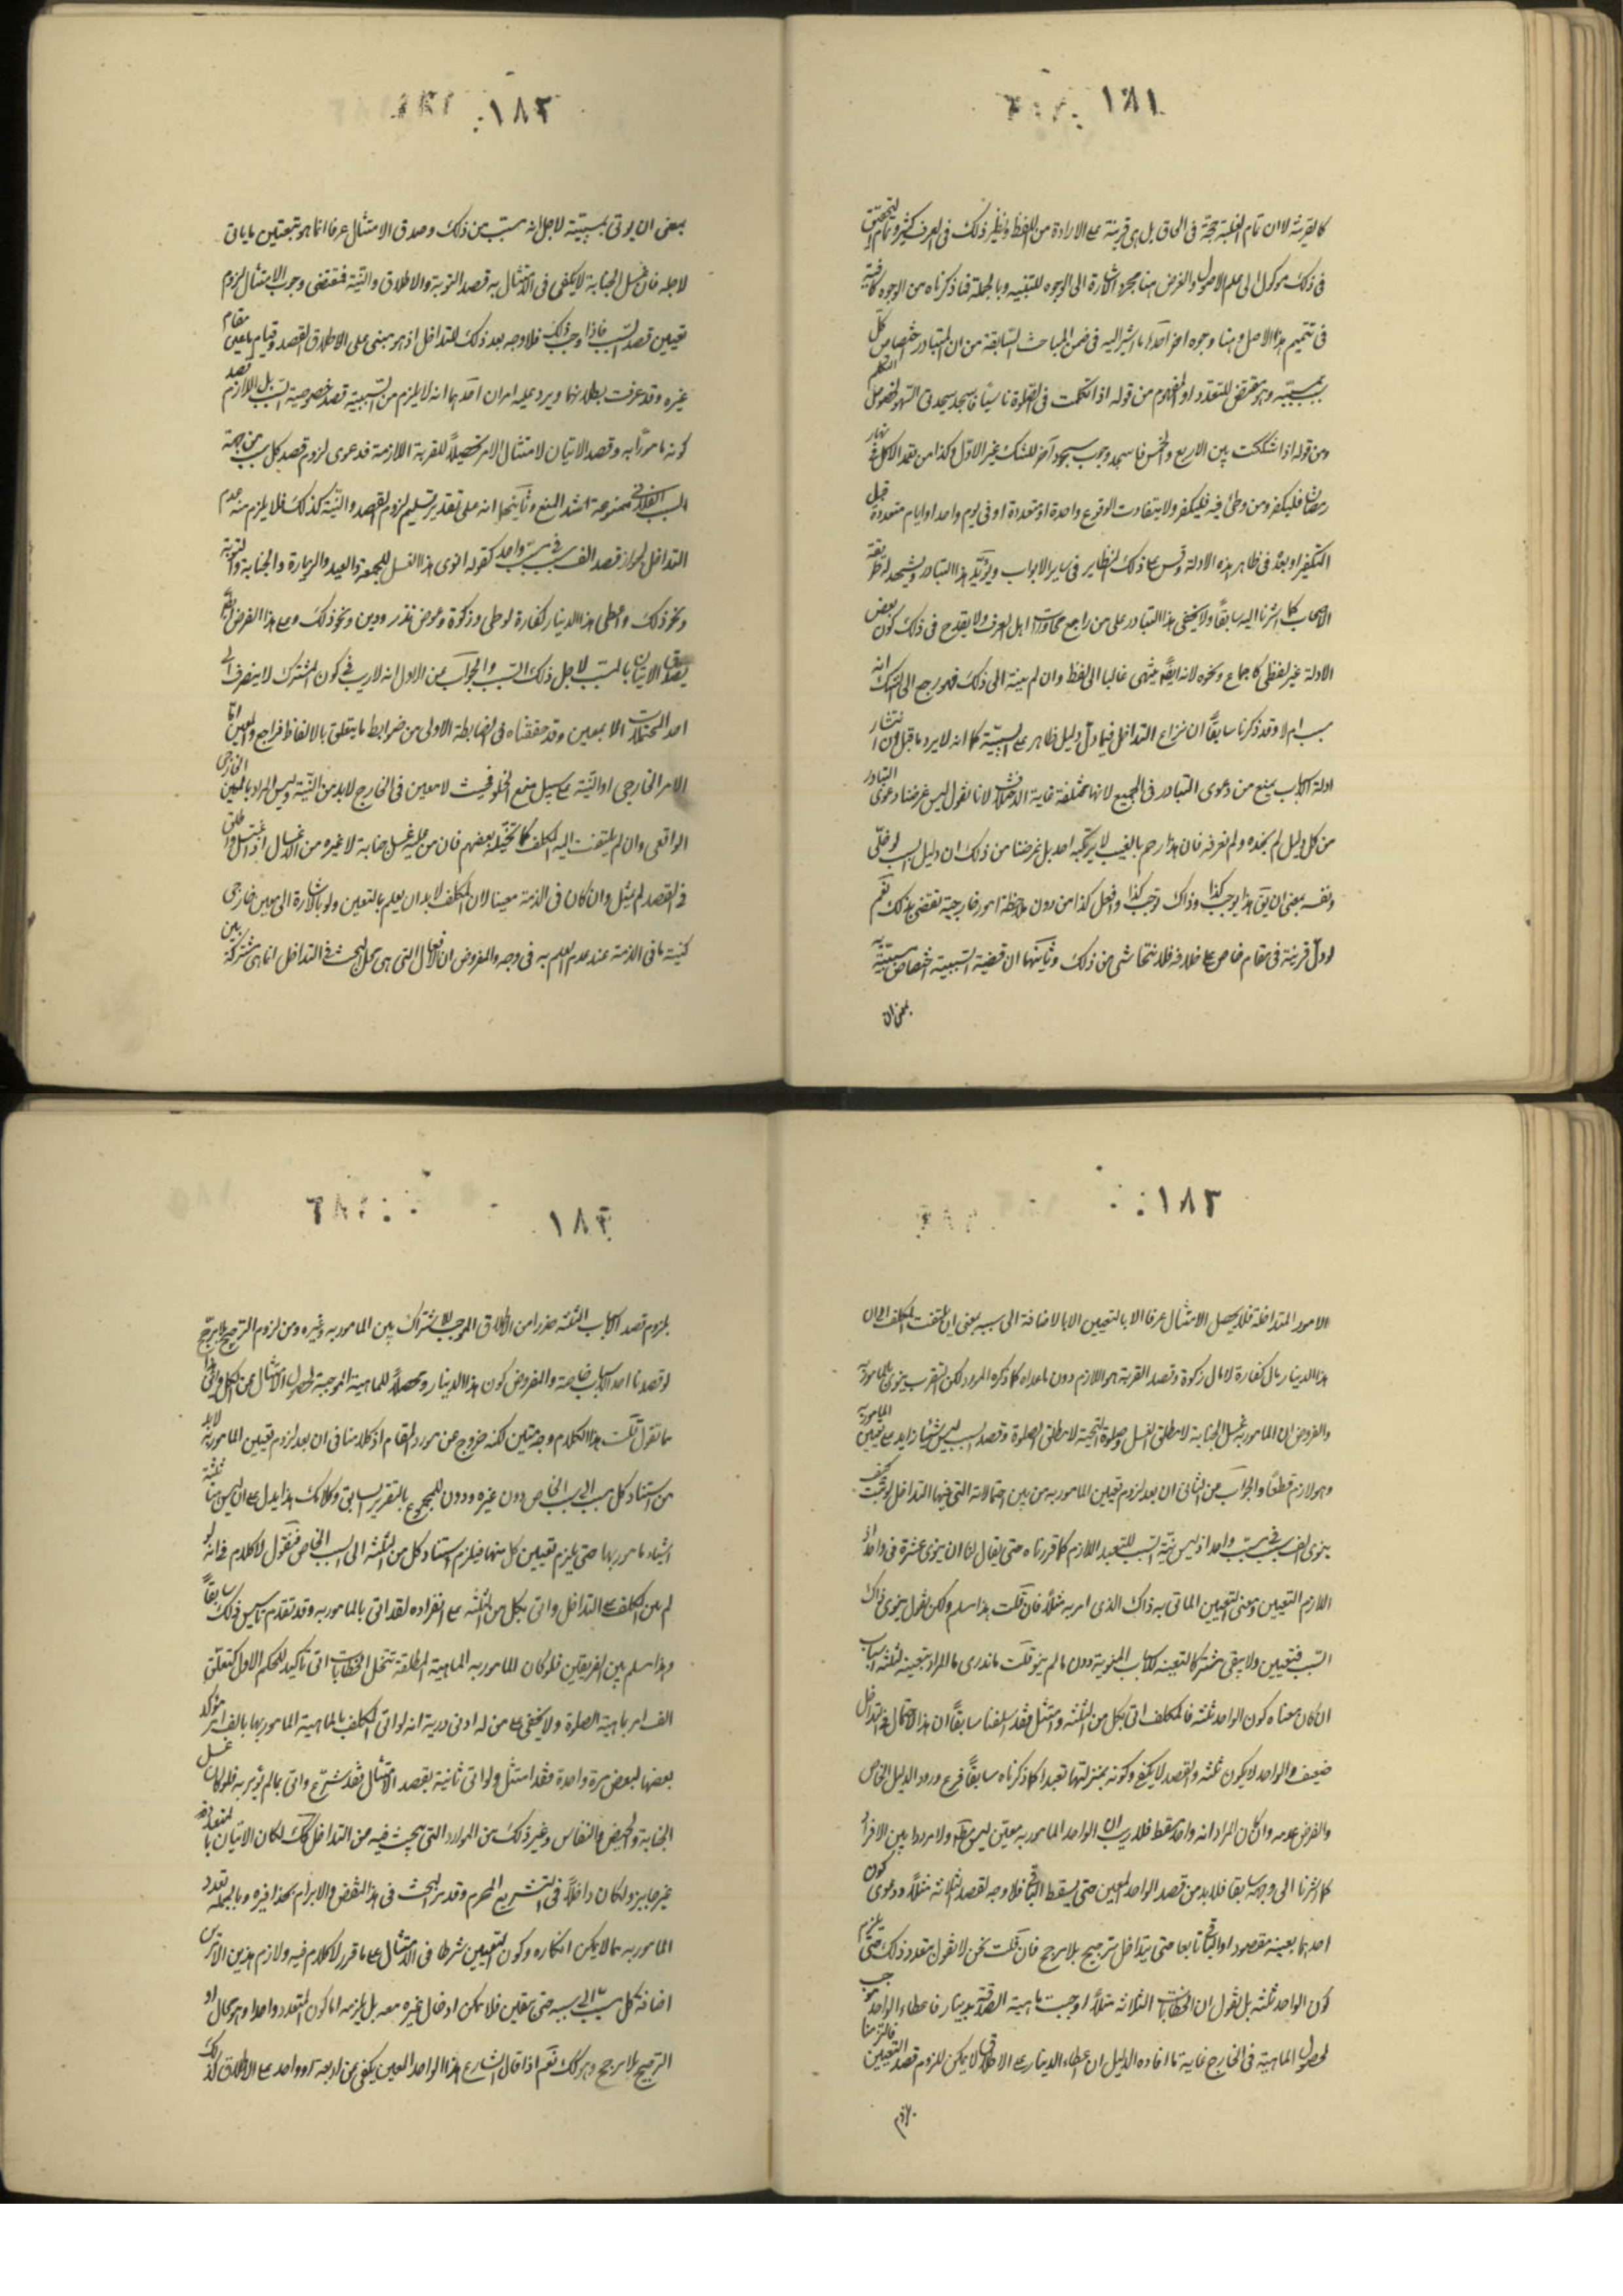 ١٨١
كالقرينة لا ان تمام الغلبة حجة فى الحاق بل هى قرينة على الارادة من اللفظ ونظير ذلك فى العرف كثير وتمام التحقيق
فى ذلك موكول الى علم الاصول والغرض هنا مجرد اشارة الى الوجوه للتنبيه وبالجملة فما ذكرناه من الوجوه كافية
فى تتميم هذا الاصل وهنا وجوه اخر احدها ما اشرنا اليه فى ضمن المباحث السابقة من ان المتبادر اختصاص كل
سبب بمسببه وهو مقتض للتعدد او المفهوم من قوله اذا تكلمت فى الصلوة ناسيا فاسجد سجدتى السهو لخصوص التكلم
ومن قوله اذا شككت بين الاربع والخمس فاسجد وجوب سجود آخر للشك غير الاول وكذا من تعمد الاكل فى نهار
رمضان فليكفر ومن وطئ فيه فليكفر ولا يتفاوت الوقوع واحدة او متعددة او فى يوم واحد او ايام متعددة قبل
التكفير او بعده فى ظاهر هذه الادلة وقس على ذلك النظاير فى ساير الابواب ويؤيد هذا التبادر ويشهد له طريقة
الاصحاب كما اشرنا اليه سابقاً ولا يخفى هذا التبادر على من راجع محاورات اهل العرف ولا يقدح فى ذلك كون بعض
الادلة غير لفظى كاجماع ونحوه لانه ايضاً ينتهى غالبا الى لفظ وان لم ينته الى ذلك فهو رجع الى الشك انه
سبب ام لا وقد ذكرنا سابقاً ان نزاع التداخل فيما دل دليل ظاهر على السببية كما انه لا يرد ما قيل ان انتشار
ادلة الاسباب يمنع من دعوى التبادر فى الجميع لانها مختلفة غاية الاختلاف لانا نقول ليس غرضنا دعوى التبادر
من كل دليل لم نجده ولم نعرفه فان هذا رجم بالغيب لا يرتكبه احد بل غرضنا من ذلك ان دليل السبب لو خلى
ونفسه بمعنى ان يق هذا يوجب كذا وذاك يوجب كذا وافعل كذا من دون ملاحظة امور خارجية تقتضى بذلك نعم
لو دل قرينة فى مقام خاص على خلافه فلا نتحاشى من ذلك وثانيها ان قضية السببية اختصاص مسببه به
بمعنى ان
١٨٢
بمعنى ان يوتى بمسببه لاجل انه مسبب من ذلك وصدق الامتثال عرفا انما هو بتعيين ما ياتى
لاجله فان غسل الجنابة لا يكفى فى الامتثال به قصد التوبة والاطلاق والنية فمقتضى وجوب الامتثال لزوم
تعيين قصد السبب فاذا وجب ذلك فلا وجه بعد ذلك للتداخل اذ هو مبنى على الاطلاق القصد وقيام ما عين مقام
غيره وقد عرفت بطلانهما ويرد عليه امران احدهما انه لا يلزم من السببية قصد خصوصية السبب بل اللازم قصد
كونه مامورا به وقصد الاتيان لامتثال الامر تحصيلاً للقربة اللازمة فدعوى لزوم قصد كل سبب من جهة
السبب الفلانى ممنوعة اشد المنع وثانيها انه على تقدير تسليم لزوم القصد والنية كذلك فلا يلزم منه عدم
التداخل لجواز قصد الف سبب فى مسبب واحد كقوله انوى هذا الغسل للجمعة والعيد والزيارة والجنابة والتوبة
ونحو ذلك واعطى هذا الدينار لكفارة لوطى وزكوة وعوض نذر ودين ونحو ذلك وعلى هذا الفرض ايضاً
يصدق الاتيان بالمسبب لاجل ذلك السبب والجواب عن الاول انه لا ريب فى كون المشترك لا ينصرف الى
احد المحتملات الا بمعين وقد حققناه فى الضابطة الاولى من ضوابط ما يتعلق بالالفاظ فراجع والمعين اما
الامر الخارجى او النية على سبيل منع الخلو فحيث لا معين فى الخارج لابد من النية وليس المراد بالمعين الخارجى
الواقعى وان لم يلتفت اليه المكلف كما تخيله بعضهم فان من عليه غسل جنابة لا غيره من الاغسال اذا اغتسل واطلق
فى القصد لم يمتثل وان كان فى الذمة معينا لان المكلف لابد ان يعلم بالتعيين ولو باشارة الى معين خارجى
كنية ما فى الذمة عند عدم العلم به فى وجه والمفروض ان الافعال التى هى محل البحث فى التداخل انما هى مشتركة بين
١٨٣
الامور المتداخلة فلا يحصل الامتثال عرفا الا بالتعيين الا بالاضافة الى سببه بمعنى ان يلتفت المكلف الى ان
هذا الدينار مال كفارة لا مال زكوة وقصد القربة هو اللازم دون ما عداه كما ذكره المورد لكن التقرب ينوى بالمامور به
والفرض ان المامور به غسل الجنابة لا مطلق الغسل وصلوة التحية لا مطلق الصلوة وقصد السبب ليس شيئا زايدا على تعيين المامور به
وهو لازم قطعاً والجواب عن الثانى ان بعد لزوم تعيين المامور به من بين احتمالاته التى فيها التداخل لو ثبت كيف
ينوى الف سبب فى مسبب واحد اذ ليس نية السبب للتعبد اللازم كما قررناه حتى يقال لنا ان ينوى عشرة فى واحد اذ
اللازم التعيين ومعنى التعيين الماتى به ذاك الذى امر به مثلاً فان قلت هذا مسلم ولكن نقول ينوى ذاك
السبب فتعيين ولا يبقى مشتركا لتعينه للاسباب المنوية دون ما لم ينو قلت ما ندرى ما المراد بتعينه لثلثة اسباب
ان كان معناه كون الواحد ثلثة فالمكلف اتى بكل من الثلثة وامتثل فقد اسلفنا سابقاً ان هذا الاحتمال فى التداخل
ضعيف والواحد لا يكون ثلثة والقصد لا يكفى وكونه بمنزلتها تعبدا كما ذكرناه سابقاً فرع ورود الدليل الخاص
والفرض عدمه وان كان المراد انه واحد فقط فلا ريب ان الواحد المامور به معين ليس مطلقا ولا مرددا بين الافراد
كما اشرنا الى وجهه سابقا فلابد من قصد الواحد المعين حتى يسقط الباقى فلا وجه لقصد الثلاثة مثلاً ودعوى كون
احدها بعينه مقصودا والباقى تابعا حتى يتداخل ترجيح بلا مرجح فان قلت نحن لا نقول بتعدد ذلك حتى يلزم
كون الواحد ثلثة بل نقول ان الخطابات الثلاثة مثلاً اوجبت ماهية الصدقة بدينار فاعطاء الواحد موجب
لحصول الماهية فى الخارج غاية ما افاده الدليل ان اعطاء الدينار على الاطلاق لا يمكن للزوم قصد التعيين فالتزمنا
بلزوم
١٨٤
بلزوم قصد الاسباب الثلثة حذرا من الاطلاق الموجب للاشتراك بين المامور به وغيره ومن لزوم الترجيح بلا مرجح
لو قصدنا احد الاسباب خاصة والمفروض كون هذا الدينار محصلاً للماهية الموجبة لحصول الامتثال عن الكل
ما تقول قلت هذا الكلام وجه متين لكنه خروج عن مورد المقام اذ كلامنا فى ان بعد لزوم تعيين المامور به لابد
من استناد كل مسبب الى سبب الخاص دون غيره ودون المجموع بالتقرير السابق وكلامك هذا يدل على ان ليس هنا ثلثة
اشياء مامور بها حتى يلزم تعيين كل منها فيلزم استناد كل من الثلثة الى السبب الخاص فنقول لا كلام فى انه لو
لم يبن المكلف على التداخل واتى بكل من الثلثة على انفراده لقد اتى بالمامور به وقد تقدم تاسيس ذلك سابقاً
وهذا مسلم بين الفريقين فلو كان المامور به الماهية المطلقة تنحل الخطابات الى تاكيد للحكم الاول كتعلق
الف امر بماهية الصلوة ولا يخفى على من له ادنى درية انه لو اتى المكلف بالماهية المامور بها بالف امر مؤكد
بعضها لبعض مرة واحدة فقد امتثل ولو اتى ثانية بقصد الامتثال فقد شرع واتى بما لم يؤمر به فلو كان غسل
الجنابة والحيض والنفاس وغير ذلك من الموارد التى يبحث فيه من التداخل كذلك لكان الاتيان بالمتعدد
غير جايز ولكان داخلاً فى التشريع المحرم وقد مر البحث فى هذا النقض والابرام بحذافيره وبالجملة تعدد
المامور به مما لا يمكن انكاره وكون التعيين شرطا فى الامتثال على ما قرر لا كلام فيه ولازم هذين الامرين
اضافة كل مسبب الى سببه حتى يتعين فلا يمكن ادخال غيره معه بل يلزمه اما كون المتعدد واحدا وهو محال او
الترجيح بلا مرجح وهو كذلك نعم اذا قال الشارع هذا الواحد المعين يكفى عن اربعة او واحد على الاطلاق كذلك